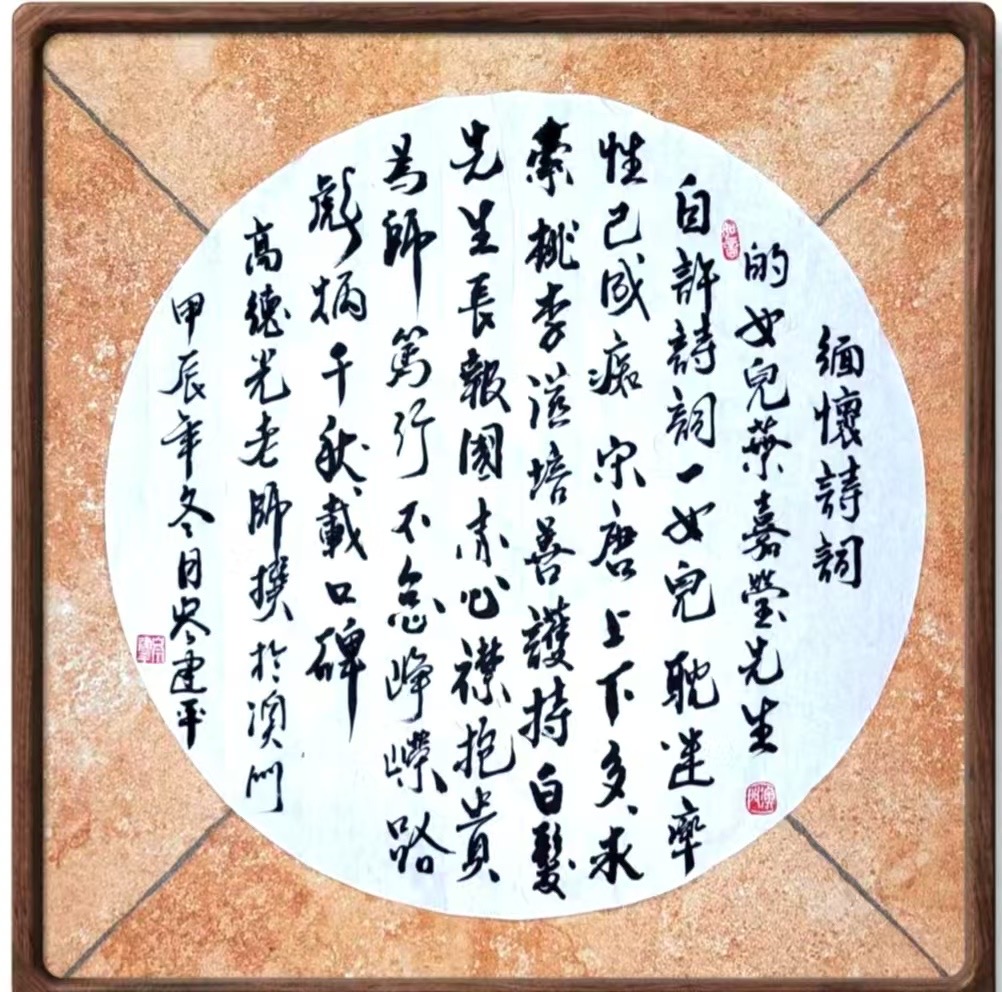 緬懷詩詞
的女兒葉嘉瑩先生
自許詩詞一女兒耽迷率
性已成痴宋唐上下多求
索桃李滋培善護持白髮
先生長報國赤心襟抱貴
為師篤行不怠崢嶸路
彪炳千秋載口碑
高德光老師撰於澳門
甲辰年冬日岑建平